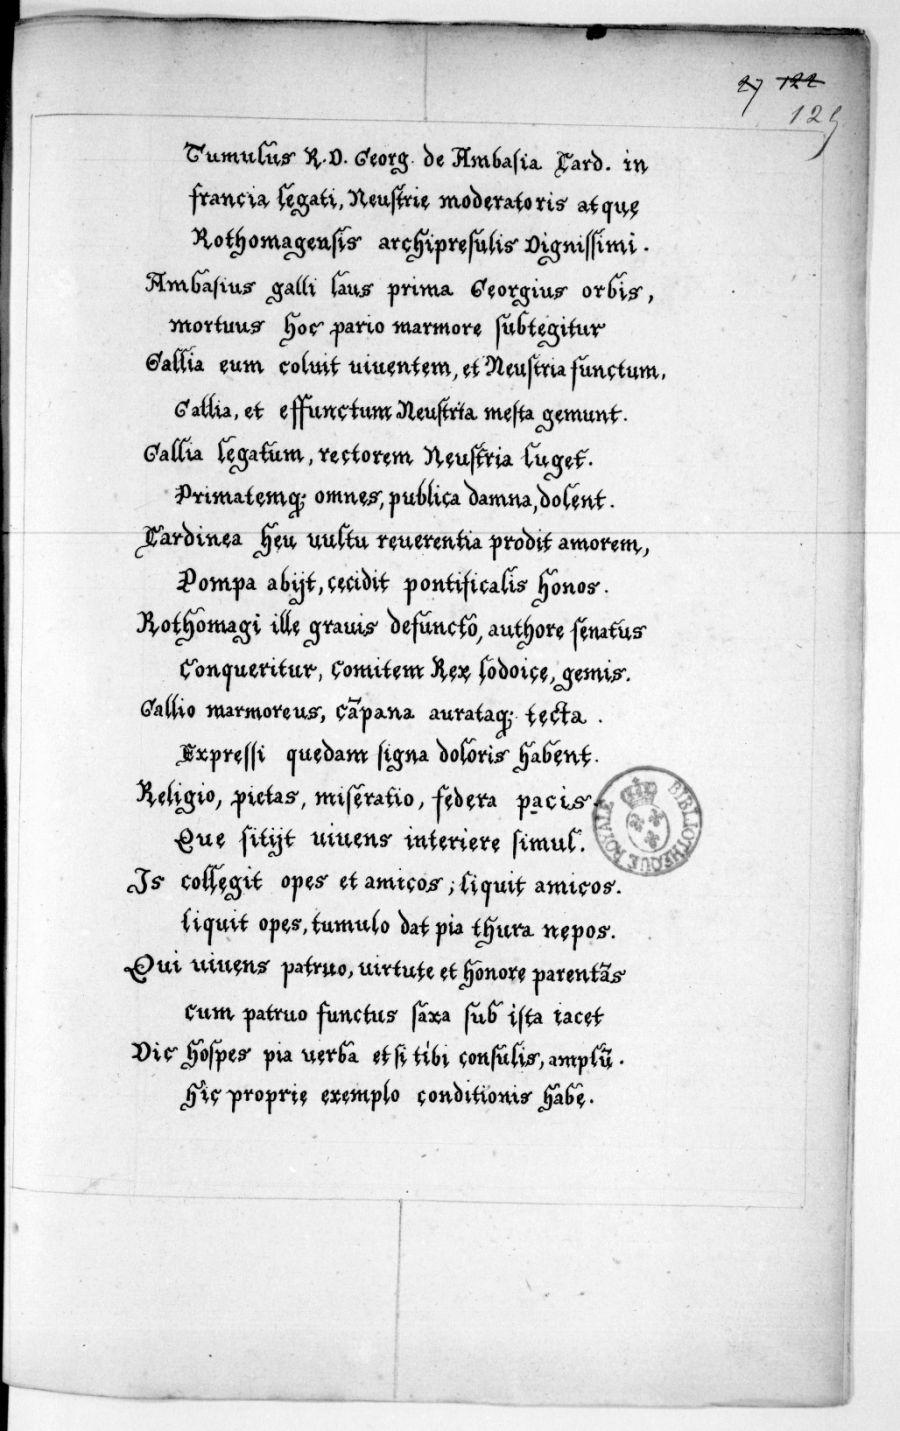 27 122
125
Tumulus R. D. Georg. de Ambasia Card. in
francia legati, Neustrie moderatoris atque
Rothomagensis archipresulis Dignissimi.
Ambasius galli laus prima Georgius orbis,
mortuus hoc pario marmore subtegitur
Gallia eum coluit uiuentem, et Neustria functum,
Gallia, et effunctum Neustria mesta gemunt.
Gallia legatum, rectorem Neustria luget.
Primatemq; omnes, publica damna, dolent.
Cardinea heu uultu reuerentia prodit amorem,
Pompa abijt, cecidit pontificalis honos.
Rothomagi ille grauis defuncto, authore senatus
Conqueritur, Comitem Rex lodoice, gemis.
Gallio marmoreus, cãpana aurataq; tecta.
Expressi quedam signa doloris habent.
Religio, pietas, miseratio, federa pacis
Que sitijt uiuens interiere simul.
Is collegit opes et amicos; liquit amicos.
liquit opes, tumulo dat pia thura nepos.
Qui uiuens patruo, uirtute et honore parentãs
cum patruo functus saxa sub ista iacet
Dic hospes pia uerba et si tibi consulis, amplũ.
hic proprie exemplo conditionis habe.
BIBLIOTHEQUE ROYALE